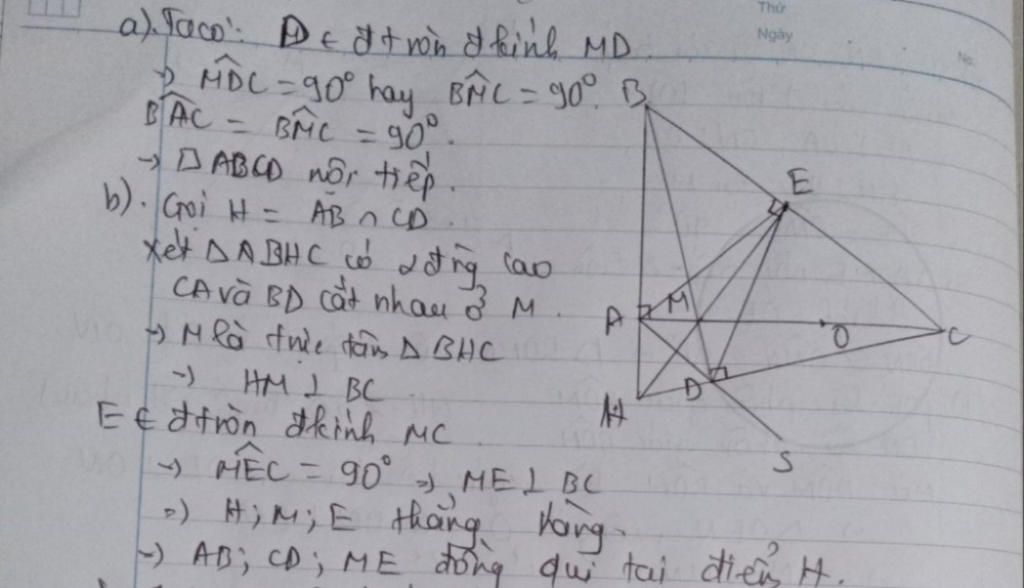 Thứ
Ngày
No.
a). Ta có: D ∈ đtròn đkính MD.
→ MDC = 90° hay BMC = 90°.
BAC = BMC = 90°.
→ □ ABCD nội tiếp.
b). Gọi H = AB ∩ CD
Xét △ ABHC có 2 đng cao
CA và BD cắt nhau ở M.
→ M là trực tâm △ BHC
→ HM ⊥ BC
E ∈ đtròn đkính MC
→ MEC = 90° → ME ⊥ BC
→ H; M; E thẳng hàng.
→ AB; CD; ME đồng qui tại điểm H.
B
E
A
M
O
C
D
H
S